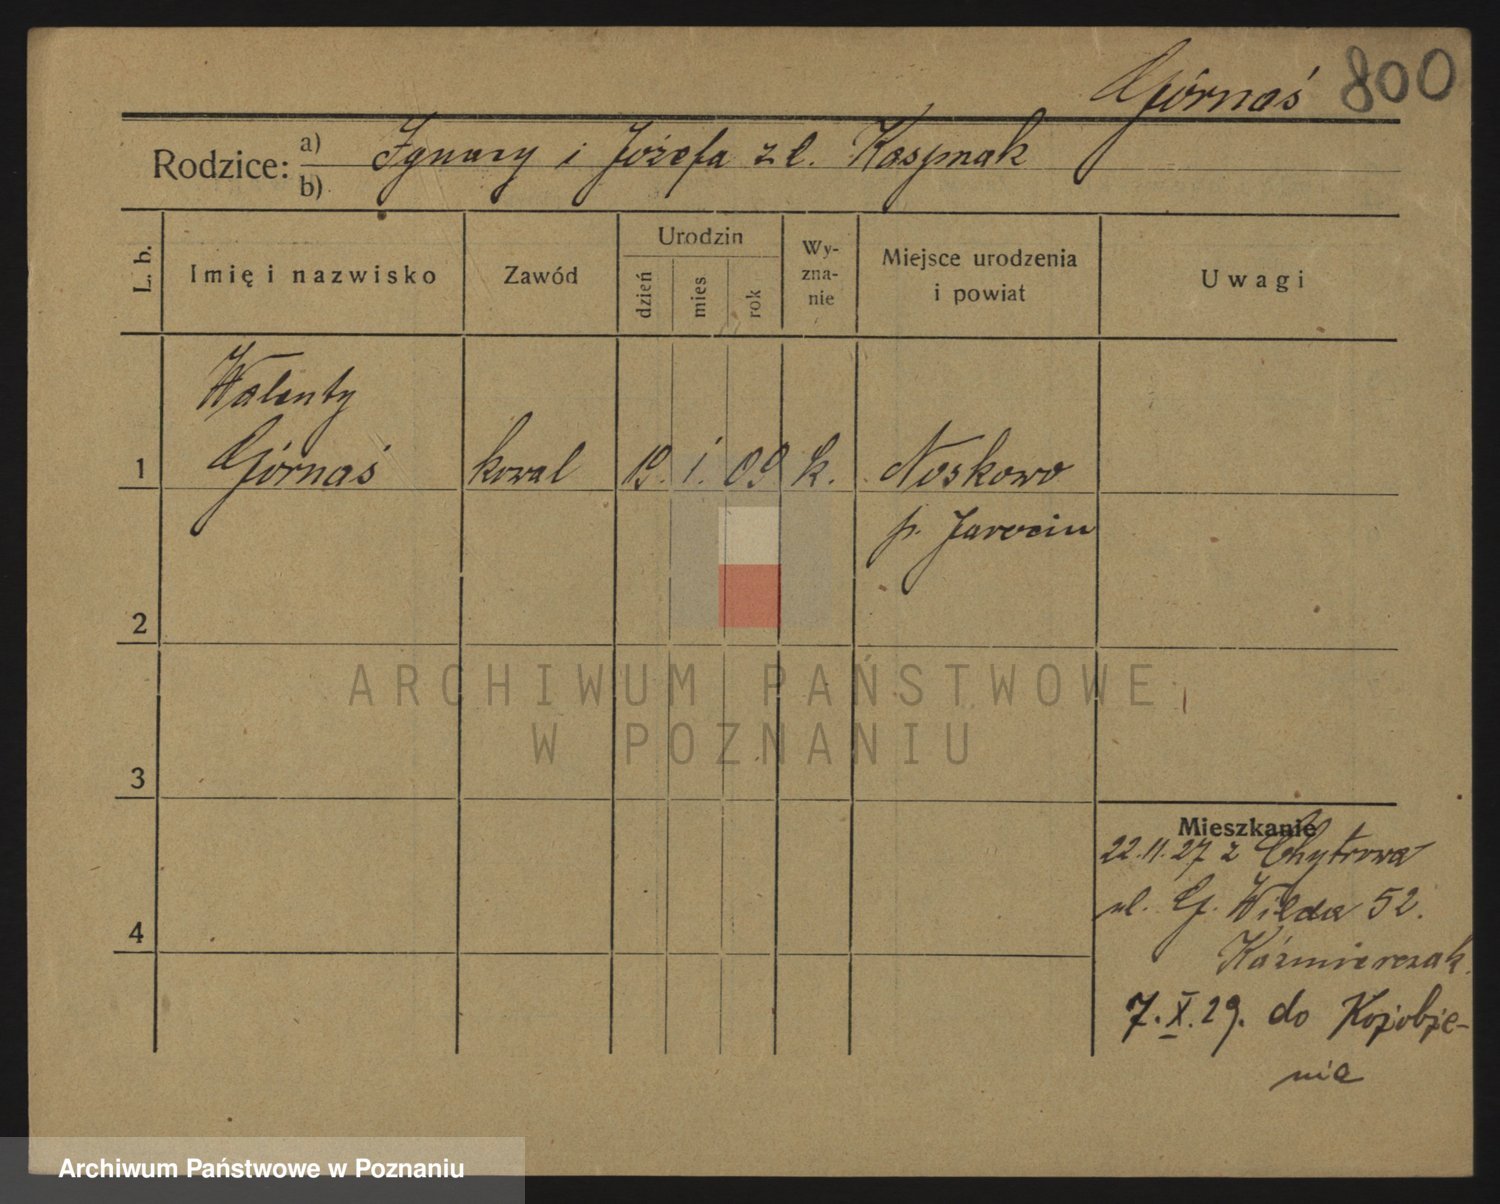 Górnaś 800
Rodzice: a) Ignacy i Józefa z d. Kasprzak
b)
L. b.
Imię i nazwisko
Zawód
Urodzin
dzień
mies
rok
Wy-
zna-
nie
Miejsce urodzenia
i powiat
Uwagi
Walenty
1 Górnaś kowal 19. 1. 09 k. Noskowo
p. Jarocin
2
ARCHIWUM PAŃSTWOWE
W POZNANIU
3
Mieszkanie
22.11.27 z Chytrowa
4 ul. G. Wilda 52.
Kaźmierczak.
7.X.29. do
nia
Archiwum Państwowe w Poznaniu